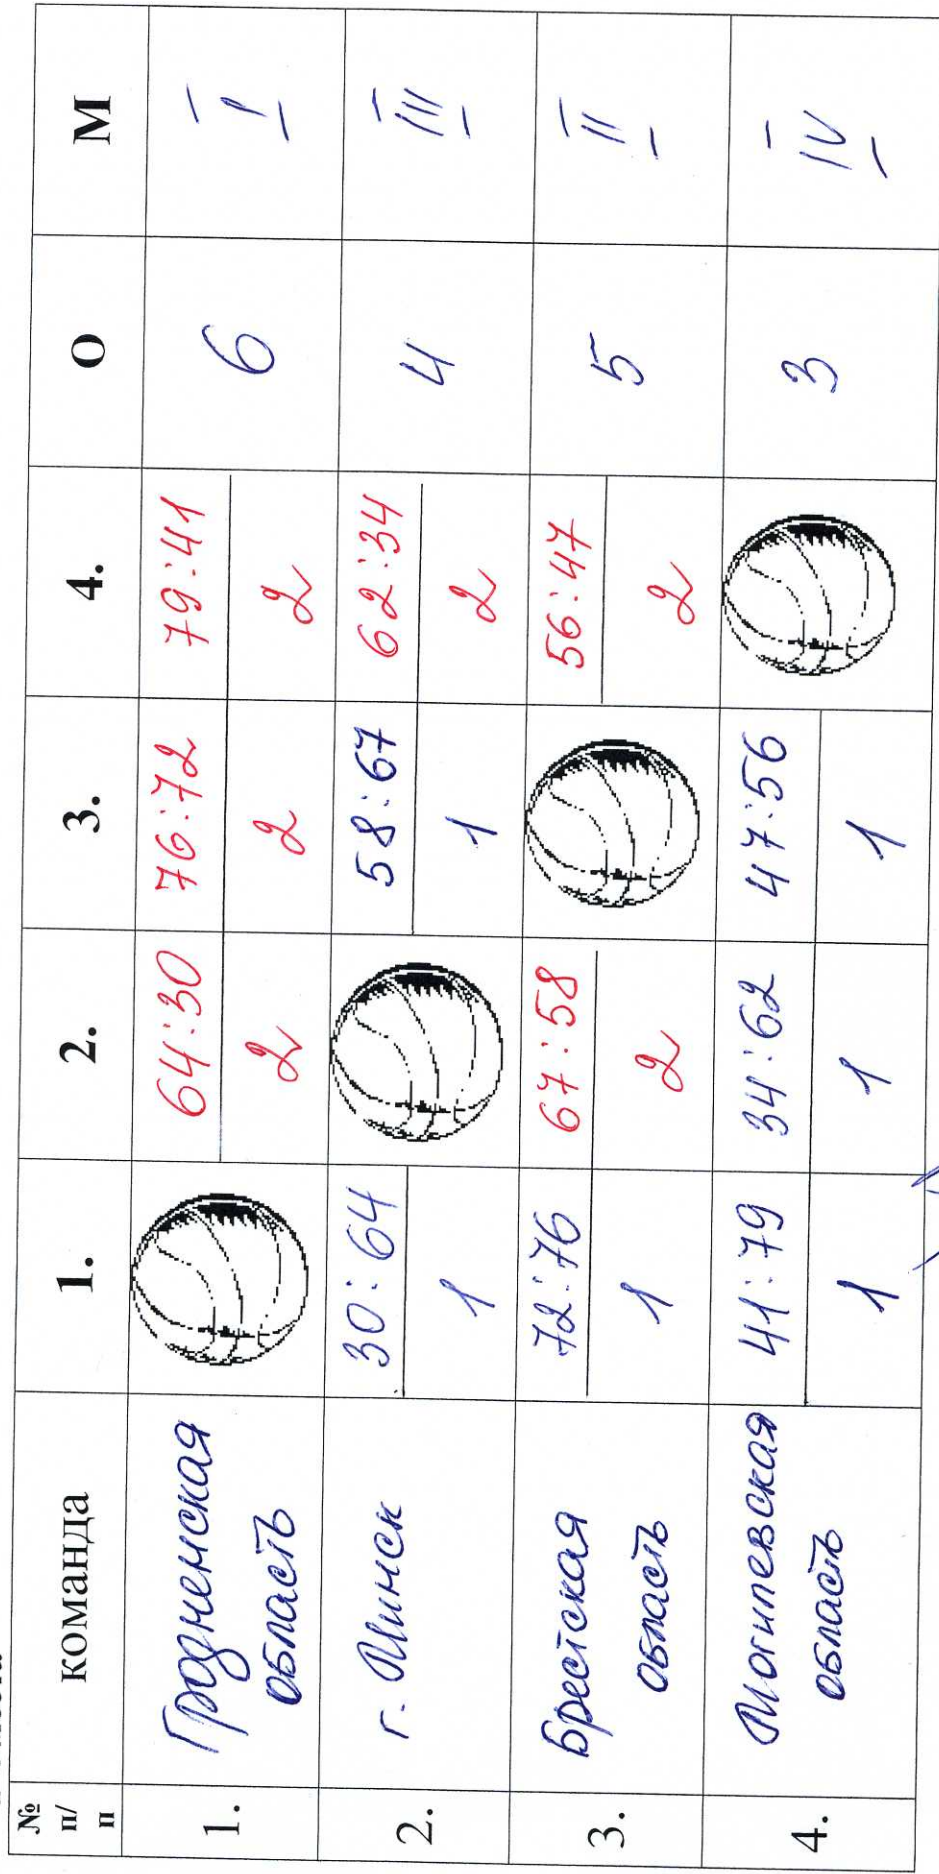 № п/п КОМАНДА 1. 2. 3. 4. О М
1. Гродненская область 64:30 76:72 79:41 6 I
2 2 2
2. г. Минск 30:64 58:67 62:34 4 III
1 1 2
3. Брестская область 72:76 67:58 56:47 5 II
1 2 2
4. Могилевская область 41:79 34:62 47:56 3 IV
1 1 1